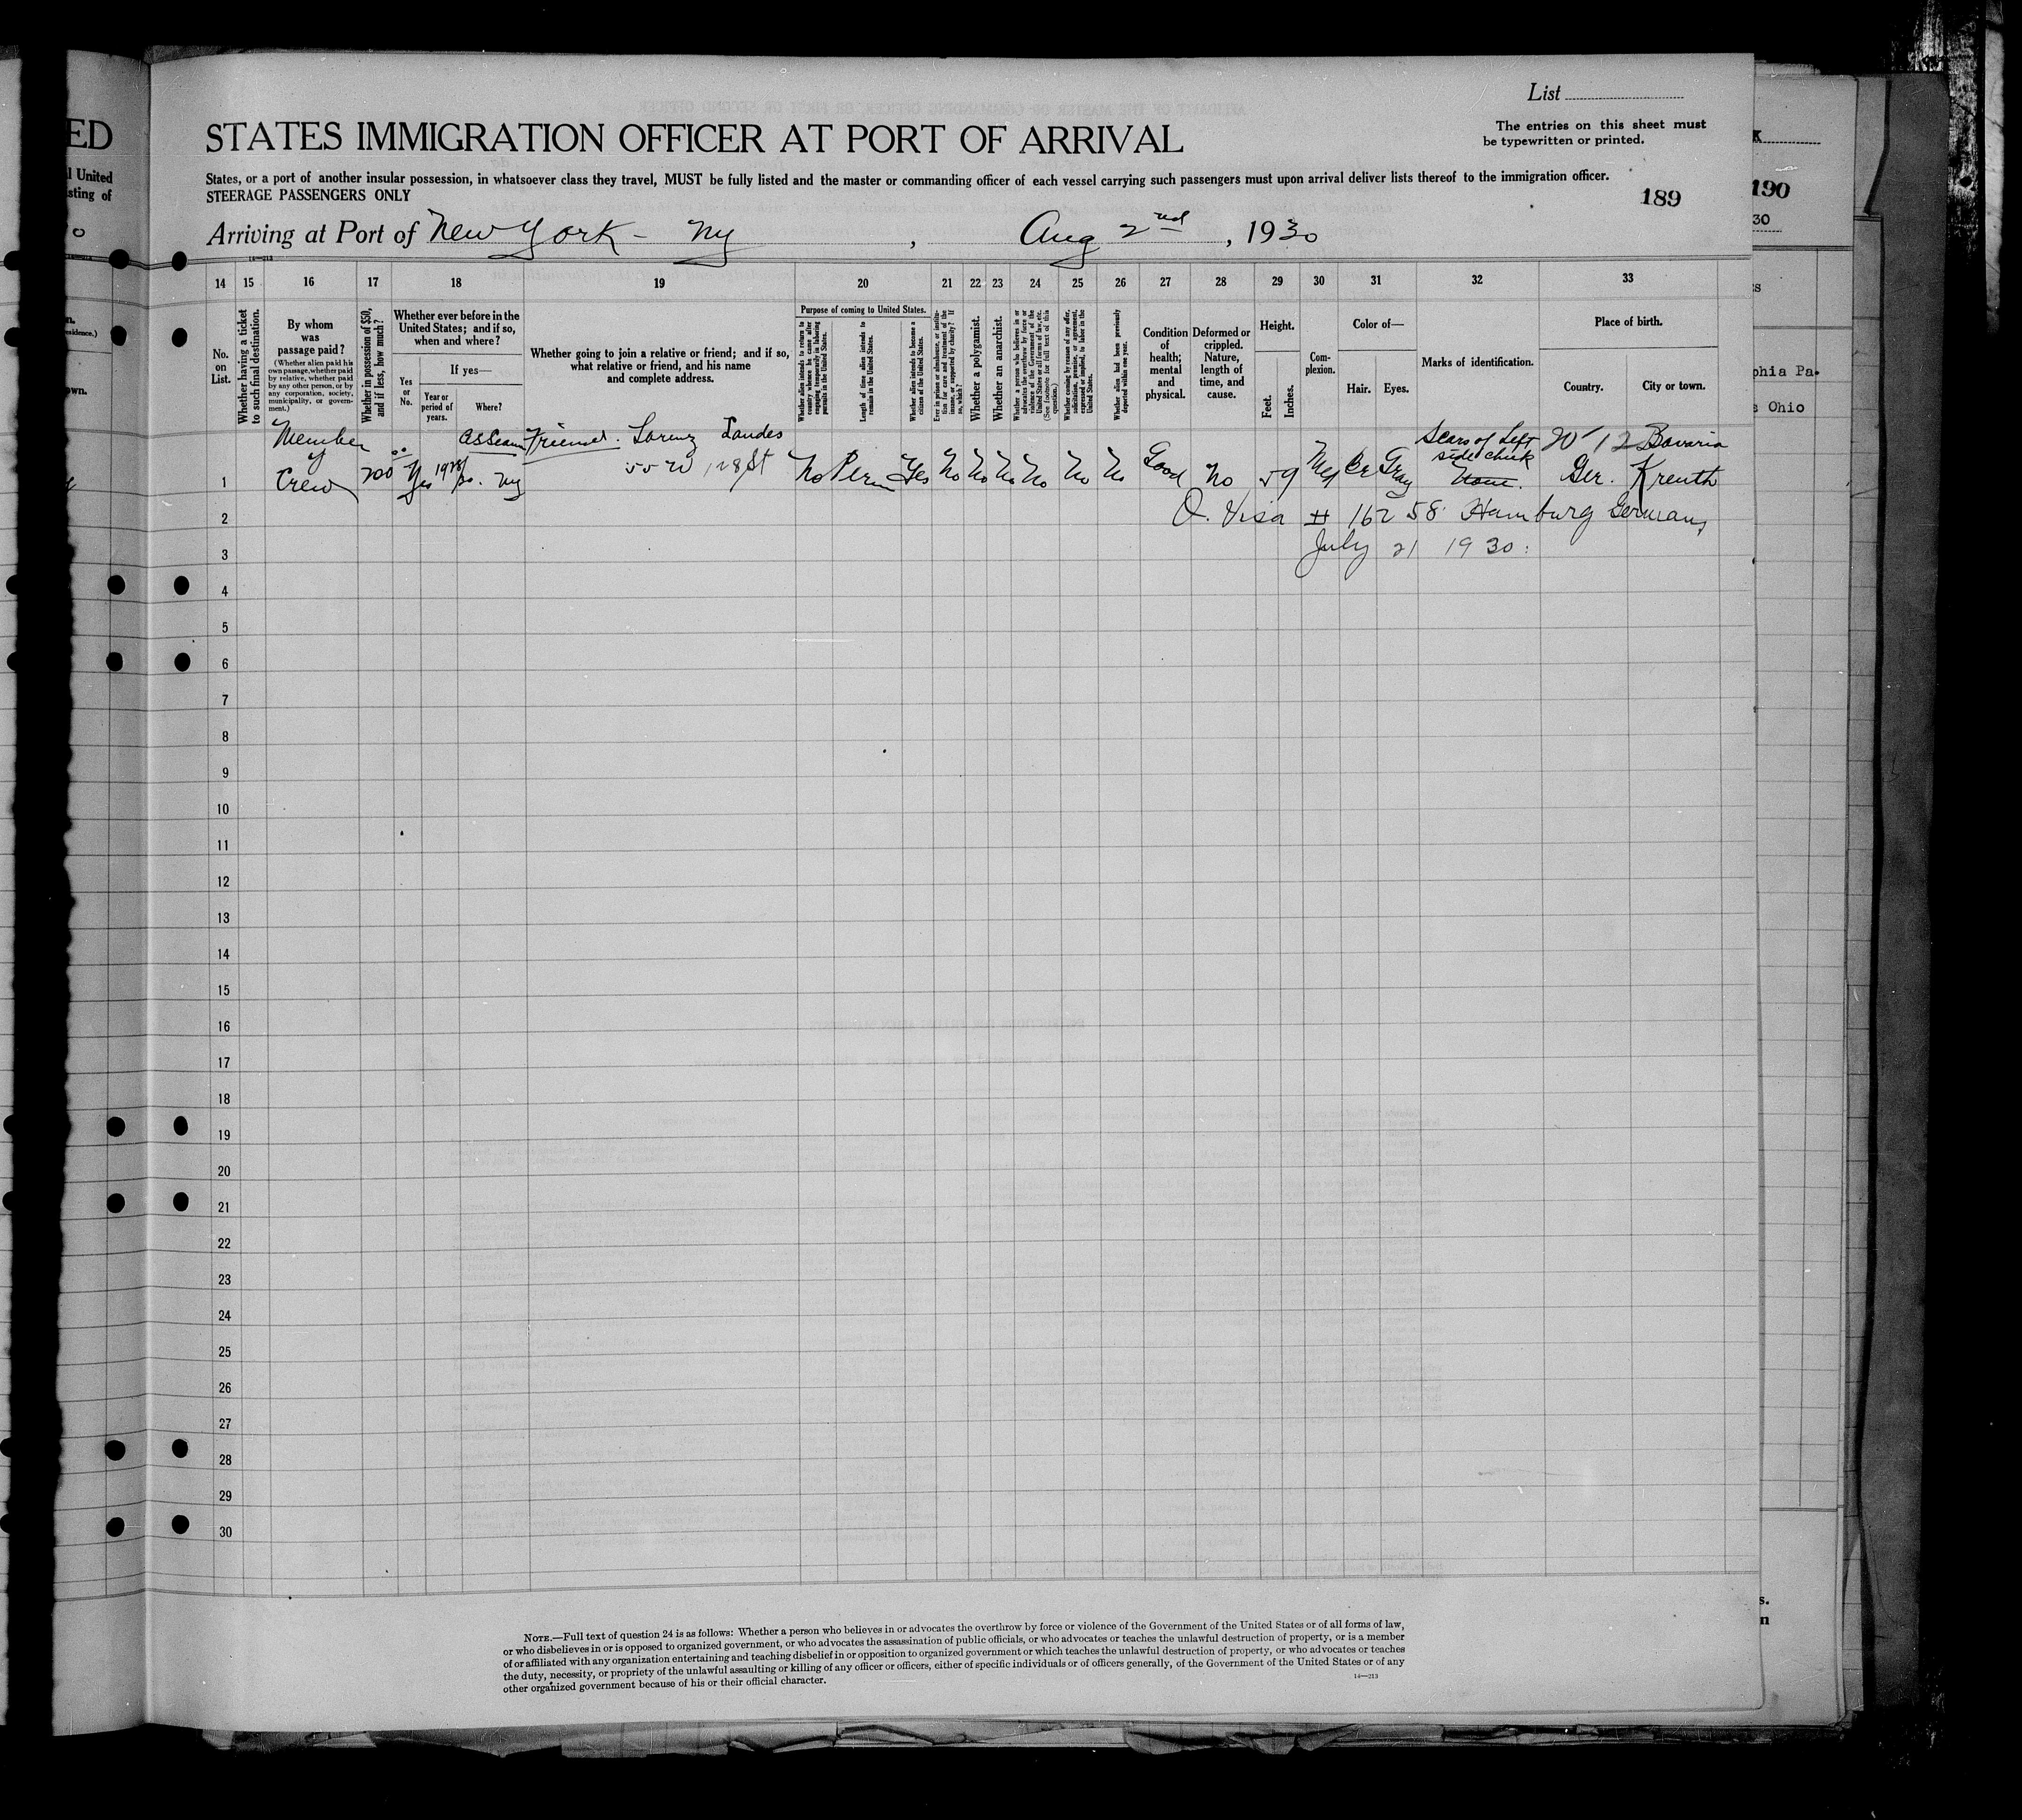 List
STATES IMMIGRATION OFFICER AT PORT OF ARRIVAL
The entries on this sheet must
be typewritten or printed.
States, or a port of another insular possession, in whatsoever class they travel, MUST be fully listed and the master or commanding officer of each vessel carrying such passengers must upon arrival deliver lists thereof to the immigration officer.
STEERAGE PASSENGERS ONLY
189
Arriving at Port of New York - NY , Aug 2nd , 1930
14 15 16 17 18 19 20 21 22 23 24 25 26 27 28 29 30 31 32 33
No. on List.
Whether having a ticket to such final destination.
By whom was passage paid?
(Whether alien paid his own passage, whether paid by relative, whether paid by any other person, or by any corporation, society, municipality, or government.)
Whether in possession of $50, and if less, how much?
Whether ever before in the United States; and if so, when and where?
Yes or No.
If yes—
Year or period of years.
Where?
Whether going to join a relative or friend; and if so, what relative or friend, and his name and complete address.
Purpose of coming to United States.
Whether alien intends to return to country whence he came after engaging temporarily in laboring pursuits in the United States.
Length of time alien intends to remain in the United States.
Whether alien intends to become a citizen of the United States.
Ever in prison or almshouse, or institution for care and treatment of the insane, or supported by charity? If so, which?
Whether a polygamist.
Whether an anarchist.
Whether a person who believes in or advocates the overthrow by force or violence of the Government of the United States or all forms of law, etc. (See footnote for full text of this question.)
Whether coming by reason of any offer, solicitation, promise, or agreement, expressed or implied, to labor in the United States.
Whether alien had been previously deported within one year.
Condition of health; mental and physical.
Deformed or crippled. Nature, length of time, and cause.
Height.
Feet. Inches.
Complexion.
Color of—
Hair. Eyes.
Marks of identification.
Place of birth.
Country. City or town.
Member as Seam Friend. Lorenz Landes Scars of Left 20/12 Bavaria
side cheek
1 Crew 200 Yes 1928 NY 55 W 128 St No Perm Yes No No No No No No Good No 5 9 Med Br Gray None. Ger. Kreuth
2 Q. Visa # 16258 Hamburg Germany
3 July 21 1930.
4
5
6
7
8
9
10
11
12
13
14
15
16
17
18
19
20
21
22
23
24
25
26
27
28
29
30
NOTE.—Full text of question 24 is as follows: Whether a person who believes in or advocates the overthrow by force or violence of the Government of the United States or of all forms of law,
or who disbelieves in or is opposed to organized government, or who advocates the assassination of public officials, or who advocates or teaches the unlawful destruction of property, or is a member
of or affiliated with any organization entertaining and teaching disbelief in or opposition to organized government or which teaches the unlawful destruction of property, or who advocates or teaches
the duty, necessity, or propriety of the unlawful assaulting or killing of any officer or officers, either of specific individuals or of officers generally, of the Government of the United States or of any
other organized government because of his or their official character.
14—213
190
30
phia Pa.
Ohio
ED
United
sting of